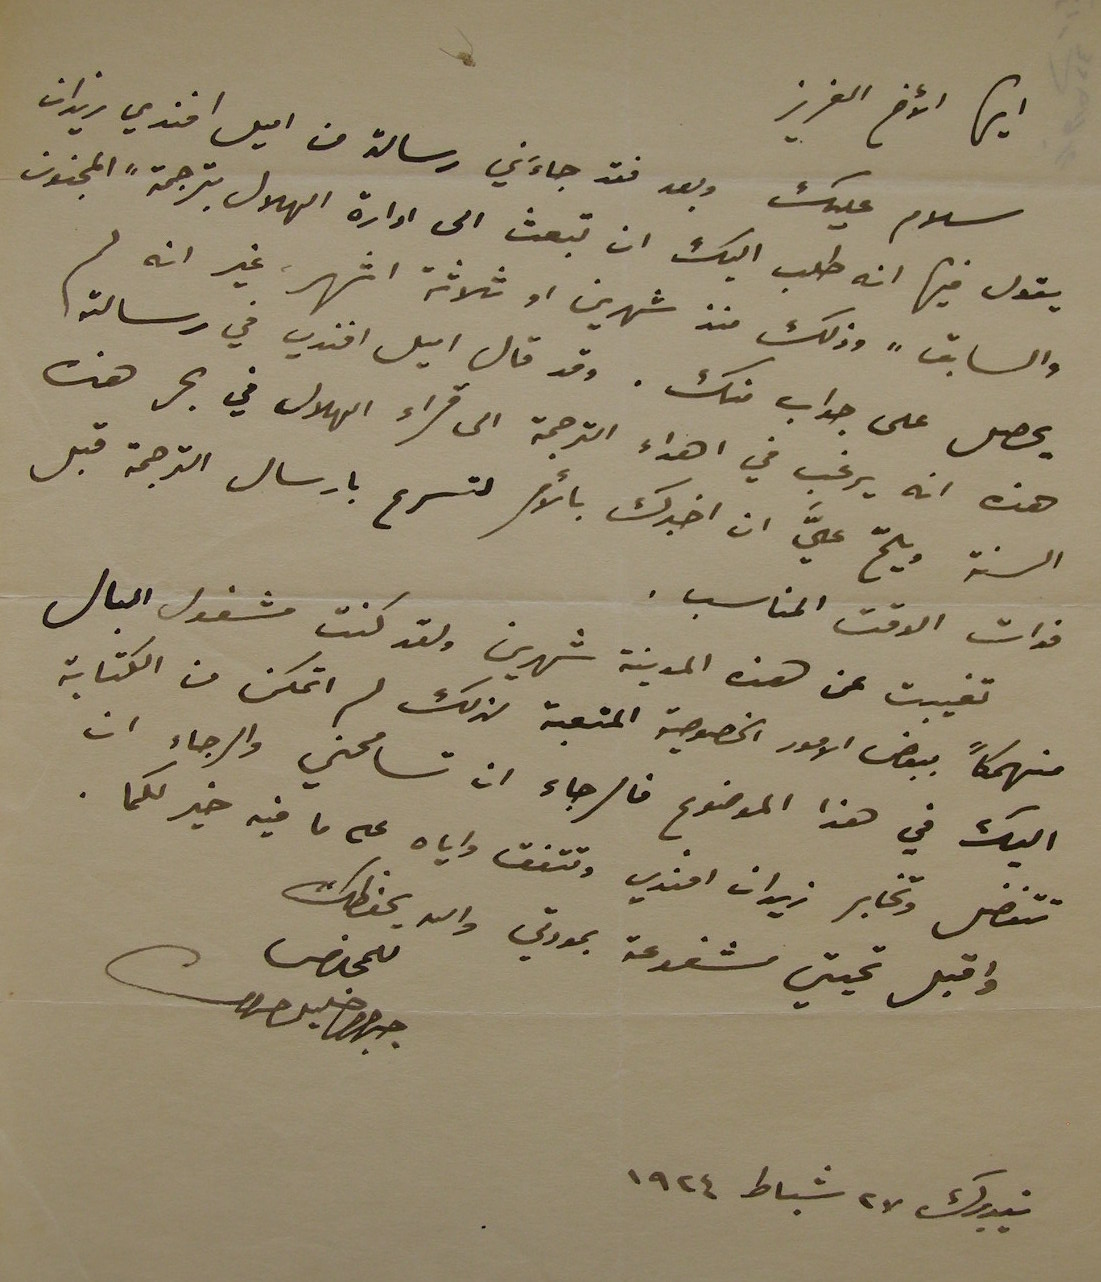 ايها الأخ العزيز
سلام عليك وبعد فقد جاءَني رسالة من اميل افندي زيدان
يقول فيها انه طلب اليك ان تبعث الى ادارة الهلال بترجمة "المجنون
والسابق" وذلك منذ شهرين او ثلاثة اشهر، غير انه لم
يحصل على جواب منك. وقد قال اميل افندي في رسالته
هذه انه يرغب في اهداء الترجمة الى قراء الهلال في بحر هذه
السنة ويلحّ عليَّ ان اخبرك بالأمر لتسرع بارسال الترجمة قبل
فوات الوقت المناسب.
تغيبت عن هذه المدينة شهرين ولقد كنت مشغول البال
منهمكاً ببعض الامور الخصوصية المتعبة لذلك لم اتمكن من الكتابة
اليك في هذا الموضوع فالرجاء ان تسامحني والرجاء ان
تتفضل وتخابر زيدان افندي وتتفق واياه على ما فيه خير لكما.
واقبل تحيتي مشفوعة بمودتي والله يحفظك
للمخلص
جبران خليل جبران
نيويورك ٢٧ شباط ١٩٢٤